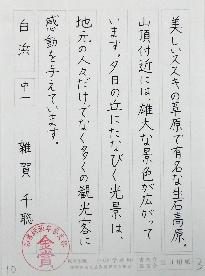 美しいススキの草原で有名な生石高原。
山頂付近には雄大な景色が広がって
います。夕日の丘にたなびく光景は、
地元の人々だけでなく多くの観光客に
感動を与えています。
白浜 中一 雑賀 千聡
金賞